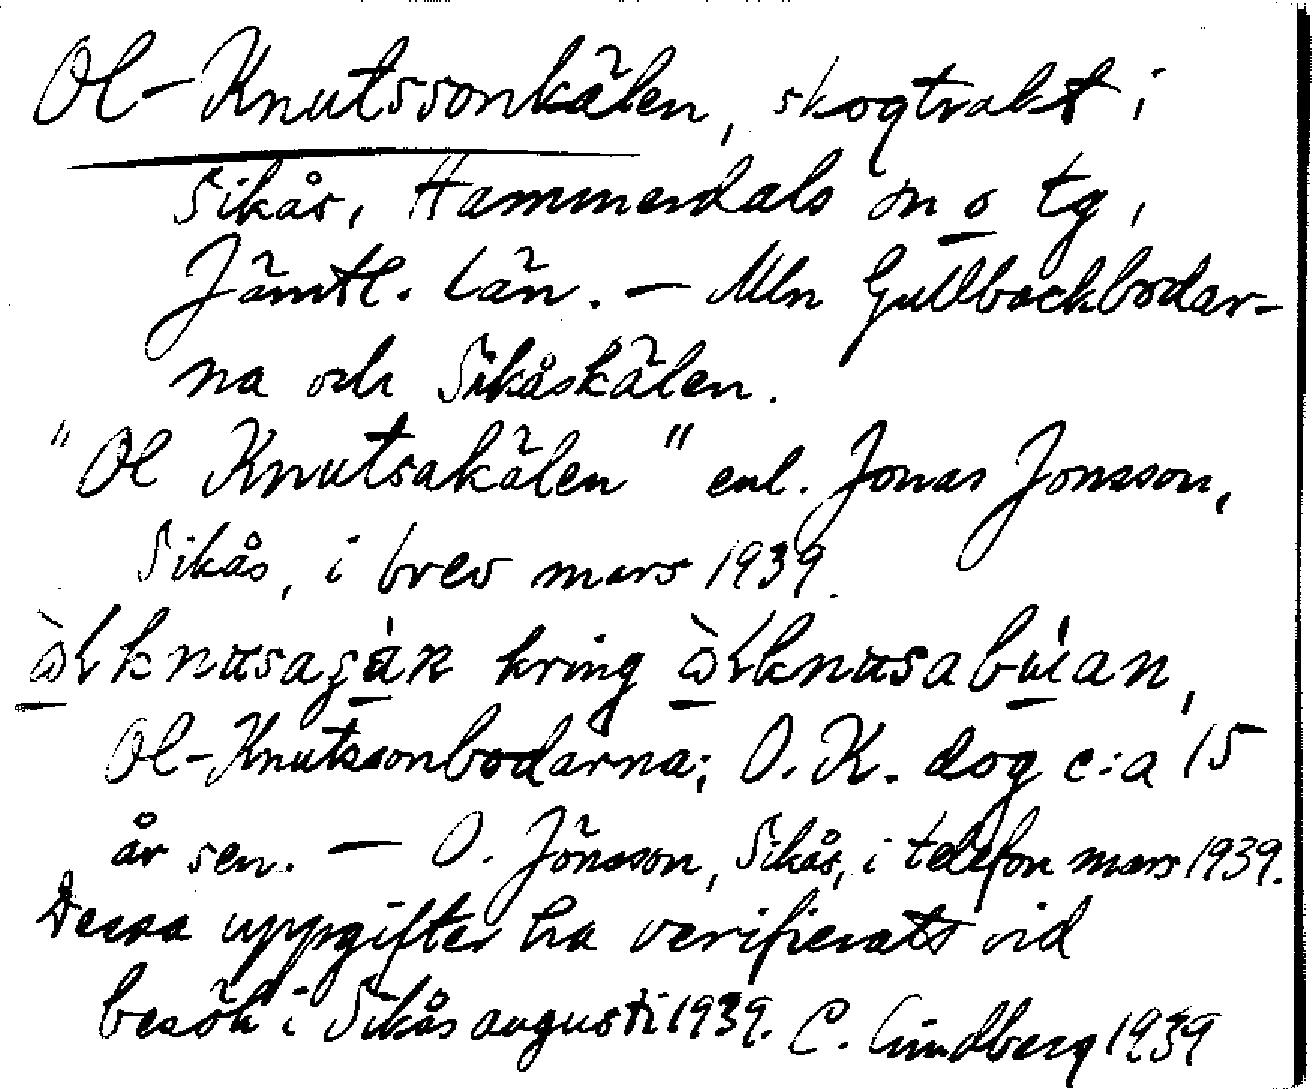 Ol-Knutssonkälen, skogtrakt i
Sikås, Hammerdals sn o tg,
Jämtl. län. — Mln Gullbackbodar-
na och Sikåskälen.
"Ol Knutsakälen" enl. Jonas Jonsson,
Sikås, i brev mars 1939.
kring
Ol-Knutssonbodarna; O. K. dog c:a 15
år sen. — O. Jönsson, Sikås, i telefon mars 1939.
Dessa uppgifter ha verifierats vid
besök i Sikås augusti 1939. C. Lindberg 1939